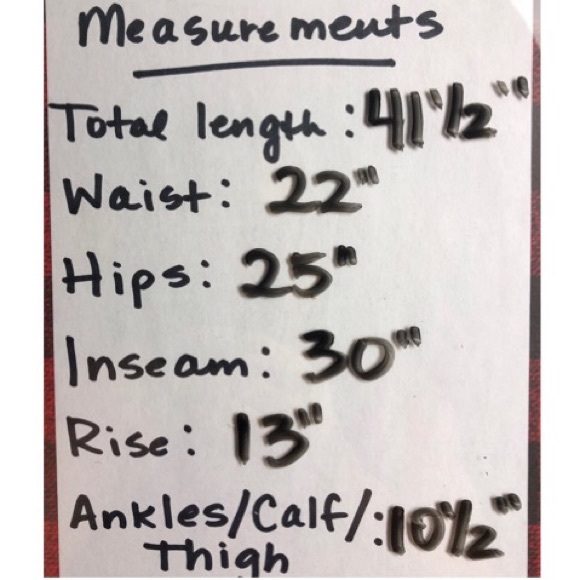 Measurements
Total length: 41"1/2""
Waist: 22""
Hips: 25"
Inseam: 30""
Rise: 13"
Ankles/Calf/: 10"1/2""
Thigh